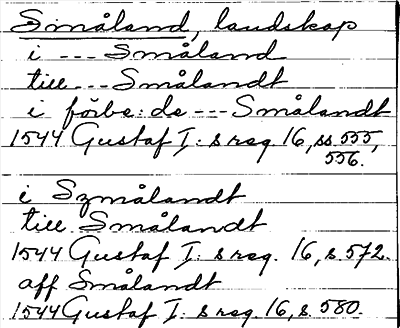 Småland, landskap
i --- Småland
till --- Smålandt
i förbe:de --- Smålandt
1544 Gustaf I: s reg. 16, ss. 555,
556.
i Szmålandt
till Smålandt
1544 Gustaf I: s reg. 16, s. 572.
aff Smålandt
1544 Gustaf I: s reg. 16, s. 580.